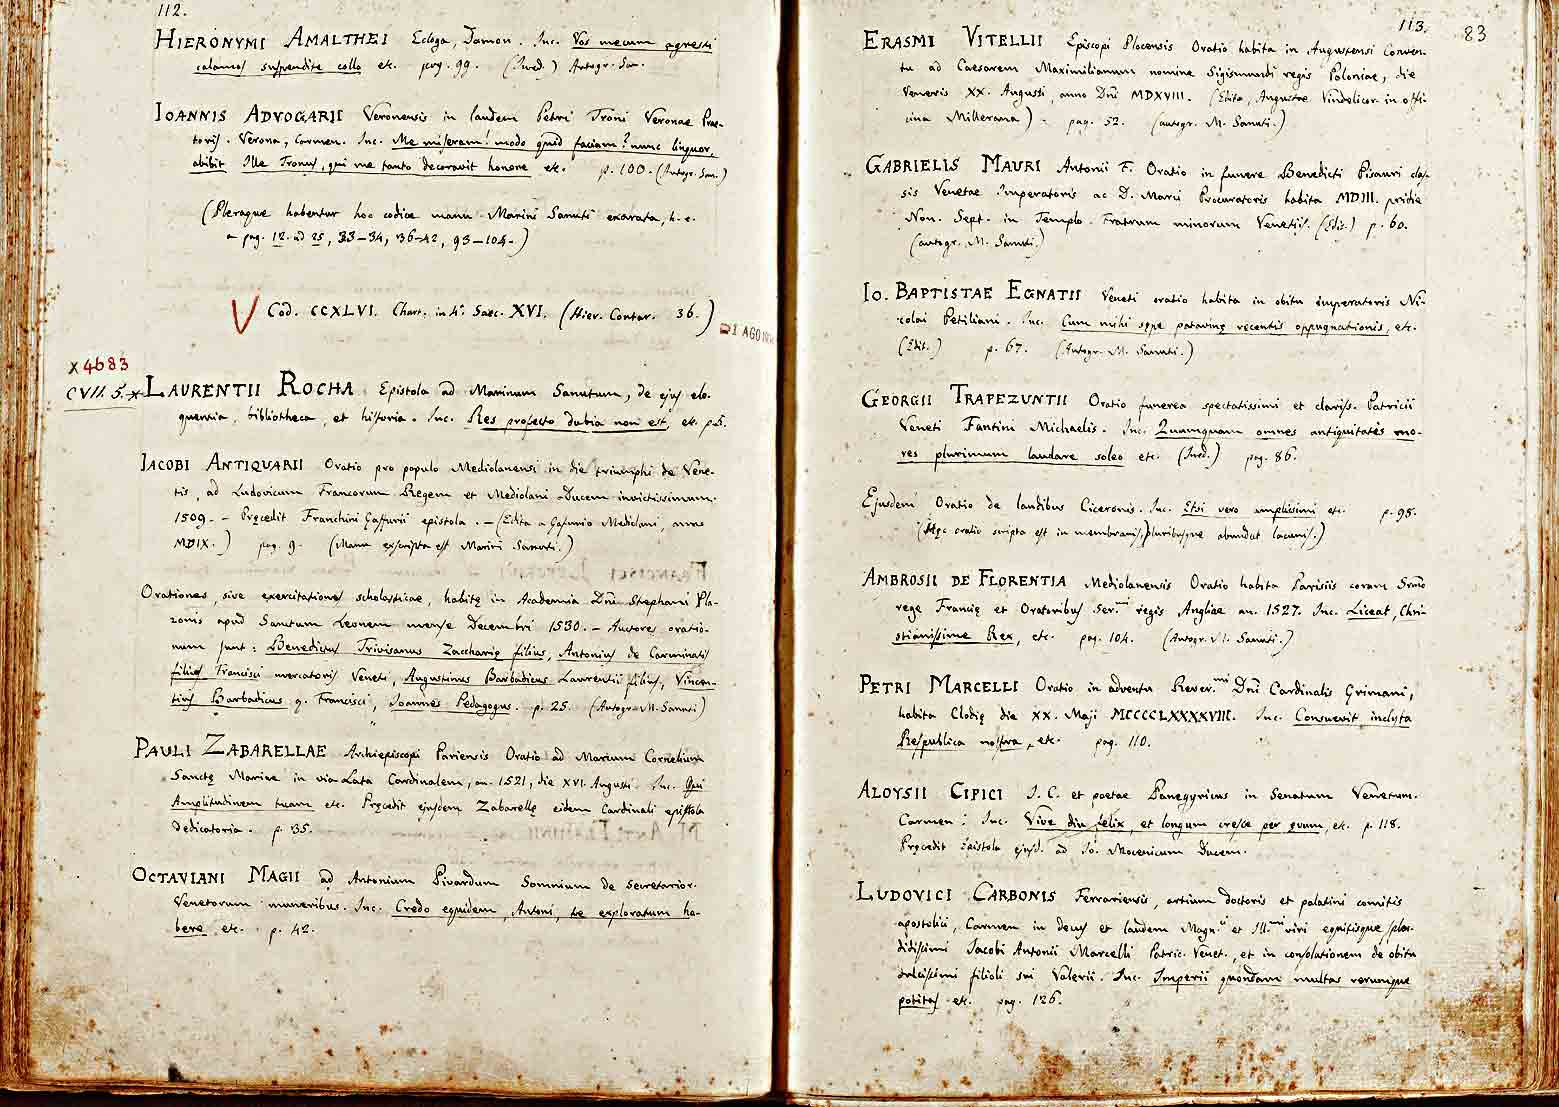 112.
HIERONYMI AMALTHEI Ecloga, Damon. Inc. Vos mecum agresti
calamos suspendite collo etc. pag. 99. (Ined.) Autogr. San.
IOANNIS ADVOGARII Veronensis in laudem Petri Troni Veronae Prae-
toris. Verona, Carmen. Inc. Me miseram! modo quid faciam? nunc linquor,
abibit Ille Tronus, qui me tanto decoravit honore etc. p. 100. (Autogr. San.)
(Pleraque habentur hoc codice manu Marini Sanuti exarata, h. e.
a pag. 12. ad 25, 33-34, 36-42, 93-104.)
V Cod. CCXLVI. Chart. in 4º. Saec. XVI. (Hier. Contar. 36.)
1 AGO
x 4683
CVII. 5. x LAURENTII ROCHA Epistola ad Marinum Sanutum, de ejus elo-
quentia, bibliotheca, et historia. Inc. Res profecto dubia non est, etc. p. 5.
IACOBI ANTIQUARII Oratio pro populo Mediolanensi in die triumphi de Vene-
tis, ad Ludovicum Francorum Regem et Mediolani Ducem invictissimum.
1509. - Pręcedit Franchini Gaffurii epistola. - (Edita a Gafurio Mediolani, anno
MDIX.) pag. 9. (Manu exscripta est Marini Sanuti.)
Orationes, sive exercitationes scholasticae, habitę in Academia Dni Stephani Pla-
zonis apud Sanctum Leonem mense Decembri 1530. - Auctores oratio-
num sunt: Benedictus Trivisanus Zacharię filius, Antonius de Carminatis
filius Francisci mercatoris Veneti, Augustinus Barbadicus Laurentii filius, Vincen-
tius Barbadicus q. Francisci, Joannes Pedagogus. p. 25. (Autogr. M. Sanuti)
PAULI ZABARELLAE Archiepiscopi Pariensis Oratio ad Marium Cornelium
Sanctę Mariae in via Lata Cardinalem, an. 1521, die XVI. Augusti. Inc. Qui
Amplitudinem tuam etc. Pręcedit ejusdem Zabarellę eidem Cardinali epistola
dedicatoria. p. 35.
OCTAVIANI MAGII ad Antonium Pivardum Somnium de Secretarior.
Venetorum muneribus. Inc. Credo equidem, Antoni, te exploratum ha-
bere, etc. p. 42.
113. 83
ERASMI VITELLII Episcopi Plocensis Oratio habita in Augustensi Conven-
tu ad Caesarem Maximilianum nomine Sigismundi regis Poloniae, die
Veneris XX. Augusti, anno Dni MDXVIII. (Edita, Augustae Vindelicor. in offi-
cina Millerana). pag. 52. (autogr. M. Sanuti.)
GABRIELIS MAURI Antonii F. Oratio in funere Benedicti Pisauri clas-
sis Venetae Imperatoris ac D. Marci Procuratoris habita MDIII. pridie
Non. Sept. in Templo Fratrum minorum Venetiis. (Edit.) p. 60.
(autogr. M. Sanuti.)
IO. BAPTISTAE EGNATII Veneti oratio habita in obitu imperatoris Ni-
colai Petiliani. Inc. Cum mihi sępe patavinę recentis oppugnationis, etc.
(Edit.) p. 67. (Autogr. M. Sanuti.)
GEORGII TRAPEZUNTII Oratio funerea spectatissimi et clariss. Patricii
Veneti Fantini Michaelis. Inc. Quamquam omnes antiquitates mo-
res plurimum laudare soleo etc. (Ined.) pag. 86.
Ejusdem Oratio de laudibus Ciceronis. Inc. Etsi vero amplissimi etc. p. 95.
(Hęc oratio scripta est in membranis, pluribusque abundat lacunis.)
AMBROSII DE FLORENTIA Mediolanensis Oratio habita Parisiis coram Srmo
rege Francię et Oratoribus Ser.mi regis Angliae an. 1527. Inc. Liceat, Chri-
stianissime Rex, etc. pag. 104. (Autogr. M. Sanuti.)
PETRI MARCELLI Oratio in adventu Rever.mi Dni Cardinalis Grimani,
habita Clodię die XX. Maji MCCCCLXXXXVIII. Inc. Consuevit inclyta
Respublica nostra, etc. pag. 110.
ALOYSII CIPICI J. C. et poetae Panegyricus in Senatum Venetum.
Carmen: Inc. Vive diu felix, et longum cresce per ęvum, etc. p. 118.
Pręcedit Epistola ejusd. ad Io. Mocenicum Ducem.
LUDOVICI CARBONIS Ferrariensis, artium doctoris et palatini comitis
apostolici, Carmen in decus et laudem Magn.ci et Ill.mi viri equitisque splen-
didissimi Jacobi Antonii Marcelli Patric. Venet., et in consolationem de obitu
dulcissimi filioli sui Valerii. Inc. Imperii quondam multas rerumque
potitas etc. pag. 126.